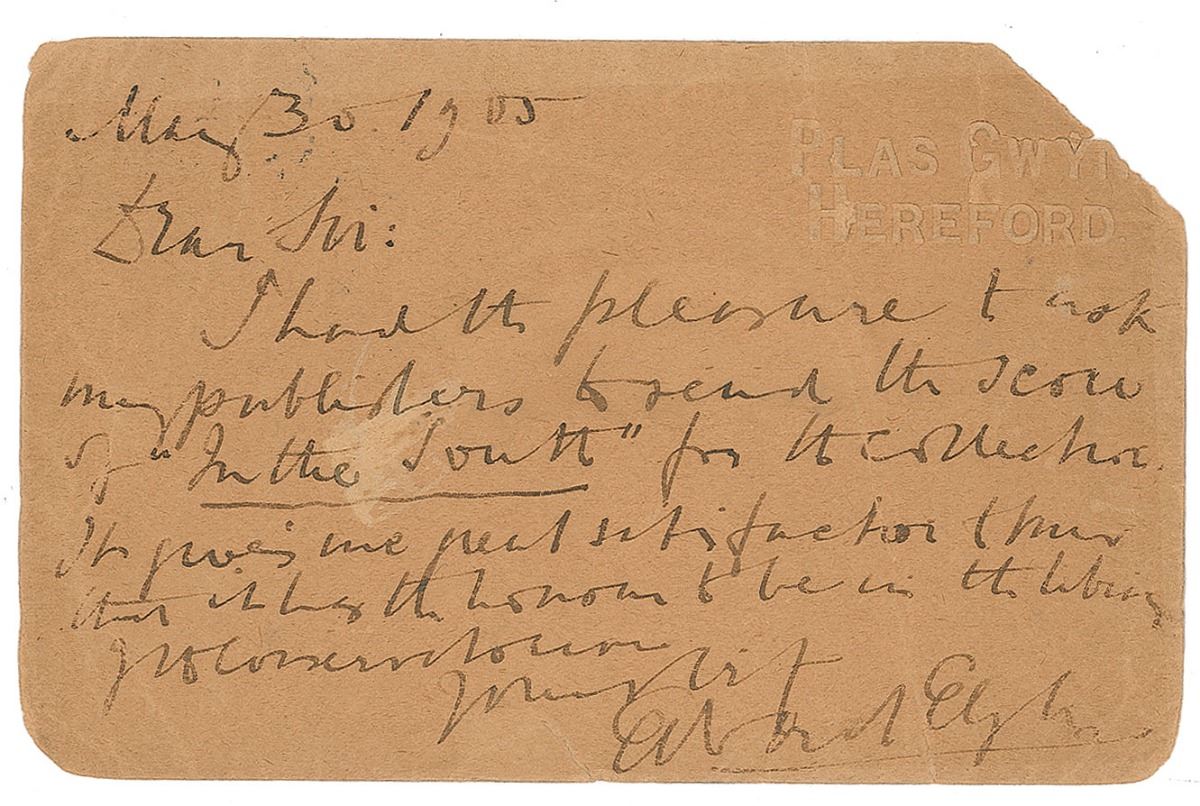 May 30. 1905
PLAS GWYN
HEREFORD.
Dear Sir:
I had the pleasure to ask
my publishers to send the score
of "In the South" for the collection.
It gives me great satisfaction to know
that it has the honour to be in the library
of the Conservatoire
Yours
Edward Elgar